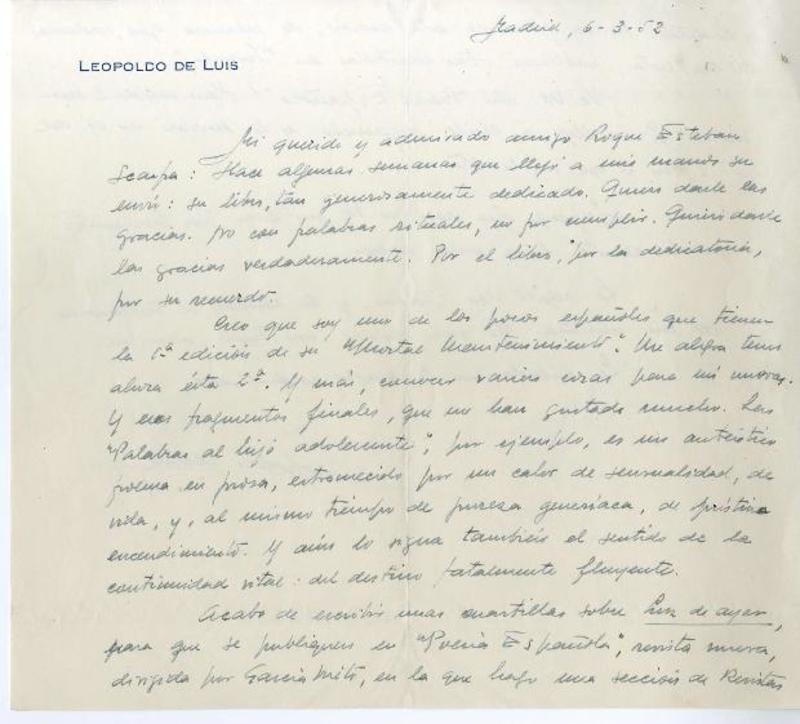 Madrid, 6-3-52
LEOPOLDO DE LUIS
Mi querido y admirado amigo Roque Esteban
Scarpa: Hace algunas semanas que llegó a mis manos su
envío: su libro, tan generosamente dedicado. Quiero darle las
gracias. No con palabras rituales, no por cumplir. Quiero darle
las gracias verdaderamente. Por el libro, por la dedicatoria,
por su recuerdo.
Creo que soy uno de los pocos españoles que tienen
la 1ª edición de su "Mortal Mantenimiento". Me alegra tener
ahora ésta 2ª. Y más, conocer varias cosas para mí nuevas.
Y esos fragmentos finales, que me han gustado mucho. Las
"Palabras al hijo adolescente", por ejemplo, es un auténtico
poema en prosa, estremecido por un calor de sensualidad, de
vida, y, al mismo tiempo de pureza de prístino
encendimiento. Y aún lo signa también el sentido de la
continuidad vital: del destino fatalmente fluyente.
Acabo de escribir unas cuartillas sobre Luz de ayer,
para que se publiquen en "Poesía Española", revista nueva,
dirigida por García Nieto, en la que hago una sección de Revistas